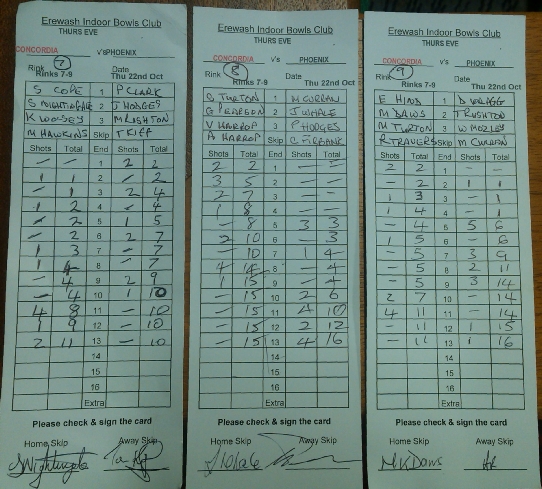 Erewash Indoor Bowls Club
THURS EVE
CONCORDIA v's PHOENIX
Rink 7 Date
Rinks 7-9 Thu 22nd Oct
S COPE 1 P CLARK
S NIGHTINGALE 2 J HODGES
3 M RISHTON
M HAWKINS Skip T KIFF
Shots Total End Shots Total
- - 1 2 2
1 1 2 - 2
- 1 3 2 4
1 2 4 - 4
- 2 5 1 5
- 2 6 2 7
1 3 7 - 7
1 4 8 - 7
- 4 9 2 9
- 4 10 1 10
4 8 11 - 10
1 9 12 - 10
2 11 13 - 10
14
15
16
Extra
Please check & sign the card
Home Skip Away Skip
Erewash Indoor Bowls Club
THURS EVE
CONCORDIA v's PHOENIX
Rink 8 Date
Rinks 7-9 Thu 22nd Oct
S TURTON 1 M CURRAN
G PEARSON 2 J WHALE
V HARROP 3 P HODGES
A HARROP Skip C FIRBANK
Shots Total End Shots Total
2 2 1 - -
3 5 2 - -
2 7 3 - -
1 8 4 - -
- 8 5 3 3
2 10 6 - 3
10 7 1 4
4 14 8 - 4
1 15 9 - 4
- 15 10 2 6
- 15 11 4 10
- 15 12 2 12
- 15 13 4 16
14
15
16
Extra
Please check & sign the card
Home Skip Away Skip
Erewash Indoor Bowls Club
THURS EVE
CONCORDIA v's PHOENIX
Rink 9 Date
Rinks 7-9 Thu 22nd Oct
E HIND 1 D WRAGG
M DAWS 2 T RUSHTON
M TURTON 3 W MOZLEY
R TRAVERS Skip M CURRAN
Shots Total End Shots Total
2 2 1 - -
- 2 2 1 1
1 3 3 - 1
1 4 4 - 1
- 4 5 5 6
1 5 6 - 6
- 5 7 3 9
- 5 8 2 11
- 5 9 3 14
2 7 10 - 14
4 11 11 - 14
- 11 12 1 15
- 11 13 1 16
14
15
16
Extra
Please check & sign the card
Home Skip Away Skip
M K Daws